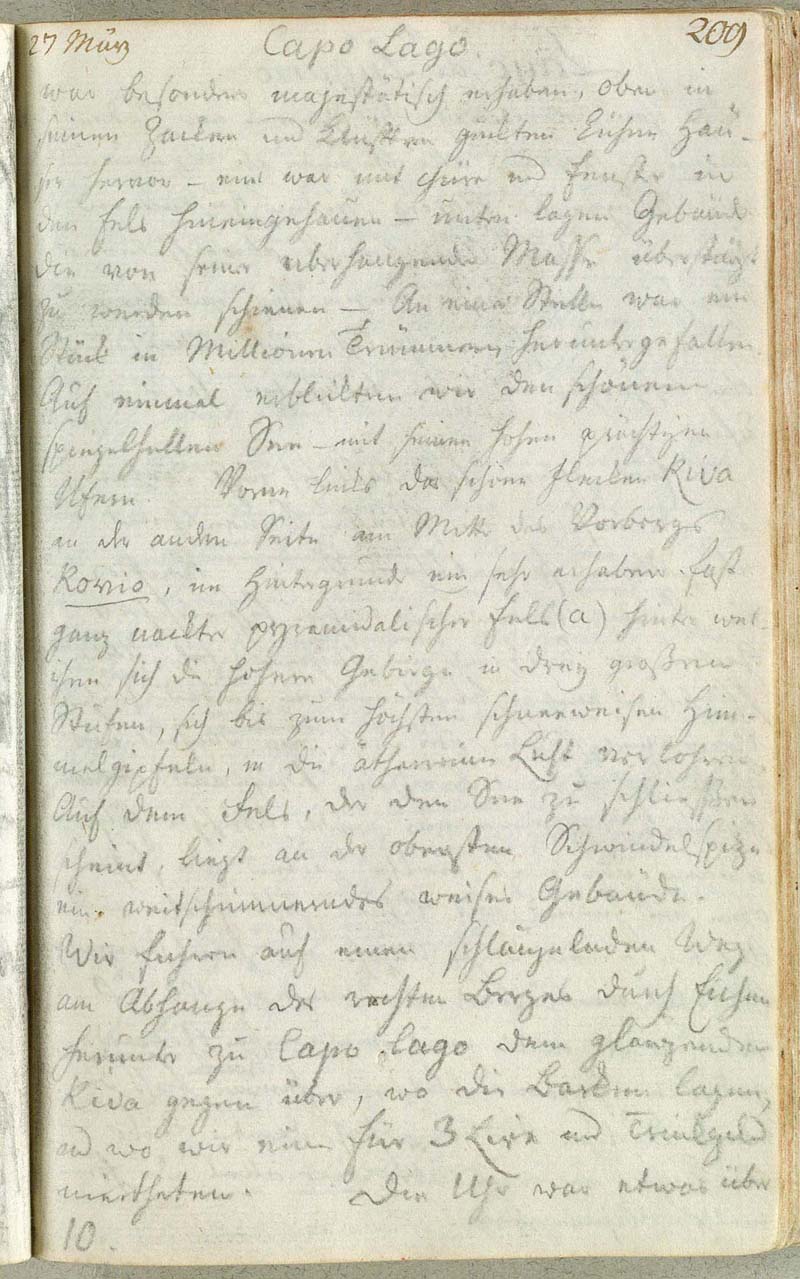 27 März Capo Lago. 209
war besonders majestätisch erhaben, oben in
seinen Zacken und Klüften Häu-
ser hervor – eins war mit Thüre und Fenster in
den Fels hineingehauen – unten lagen Gebäude
die von seiner überhangenden Masse überstürzt
zu werden schienen – An einer Stelle war ein
Stück in Millionen Trümmern heruntergefallen.
Auf einmal erblickten wir den schönen
spiegelhellen See – mit seinen hohen prächtigen
Ufern. Vorne links der schöne Flecken Riva
an der andern Seite am des Vorbergs
Rovio, im Hintergrunde ein sehr erhabner fast
ganz nackter pyramidalischer Fels (a) hinter wel-
chen sich die hohern Gebirge in drey großen
Stufen, sich bis zum höchsten schneeweisen Him-
melgipfeln, in die ätherreine Luft verlohren.
Auf dem Fels, der den See zu schließen
scheint, liegt an der obersten Schwindelspitze
ein weitschimmerndes weises Gebäude.
Wir fuhren auf einen schlängelnden Weg
am Abhange des rechten Berges durch
herunter zu Capo Lago dem glänzenden
Riva gegen über, wo die Barken lagen,
und wo wir eine für 3 Lire und Trinkgeld
mietheten. Die Uhr war etwas über
10.